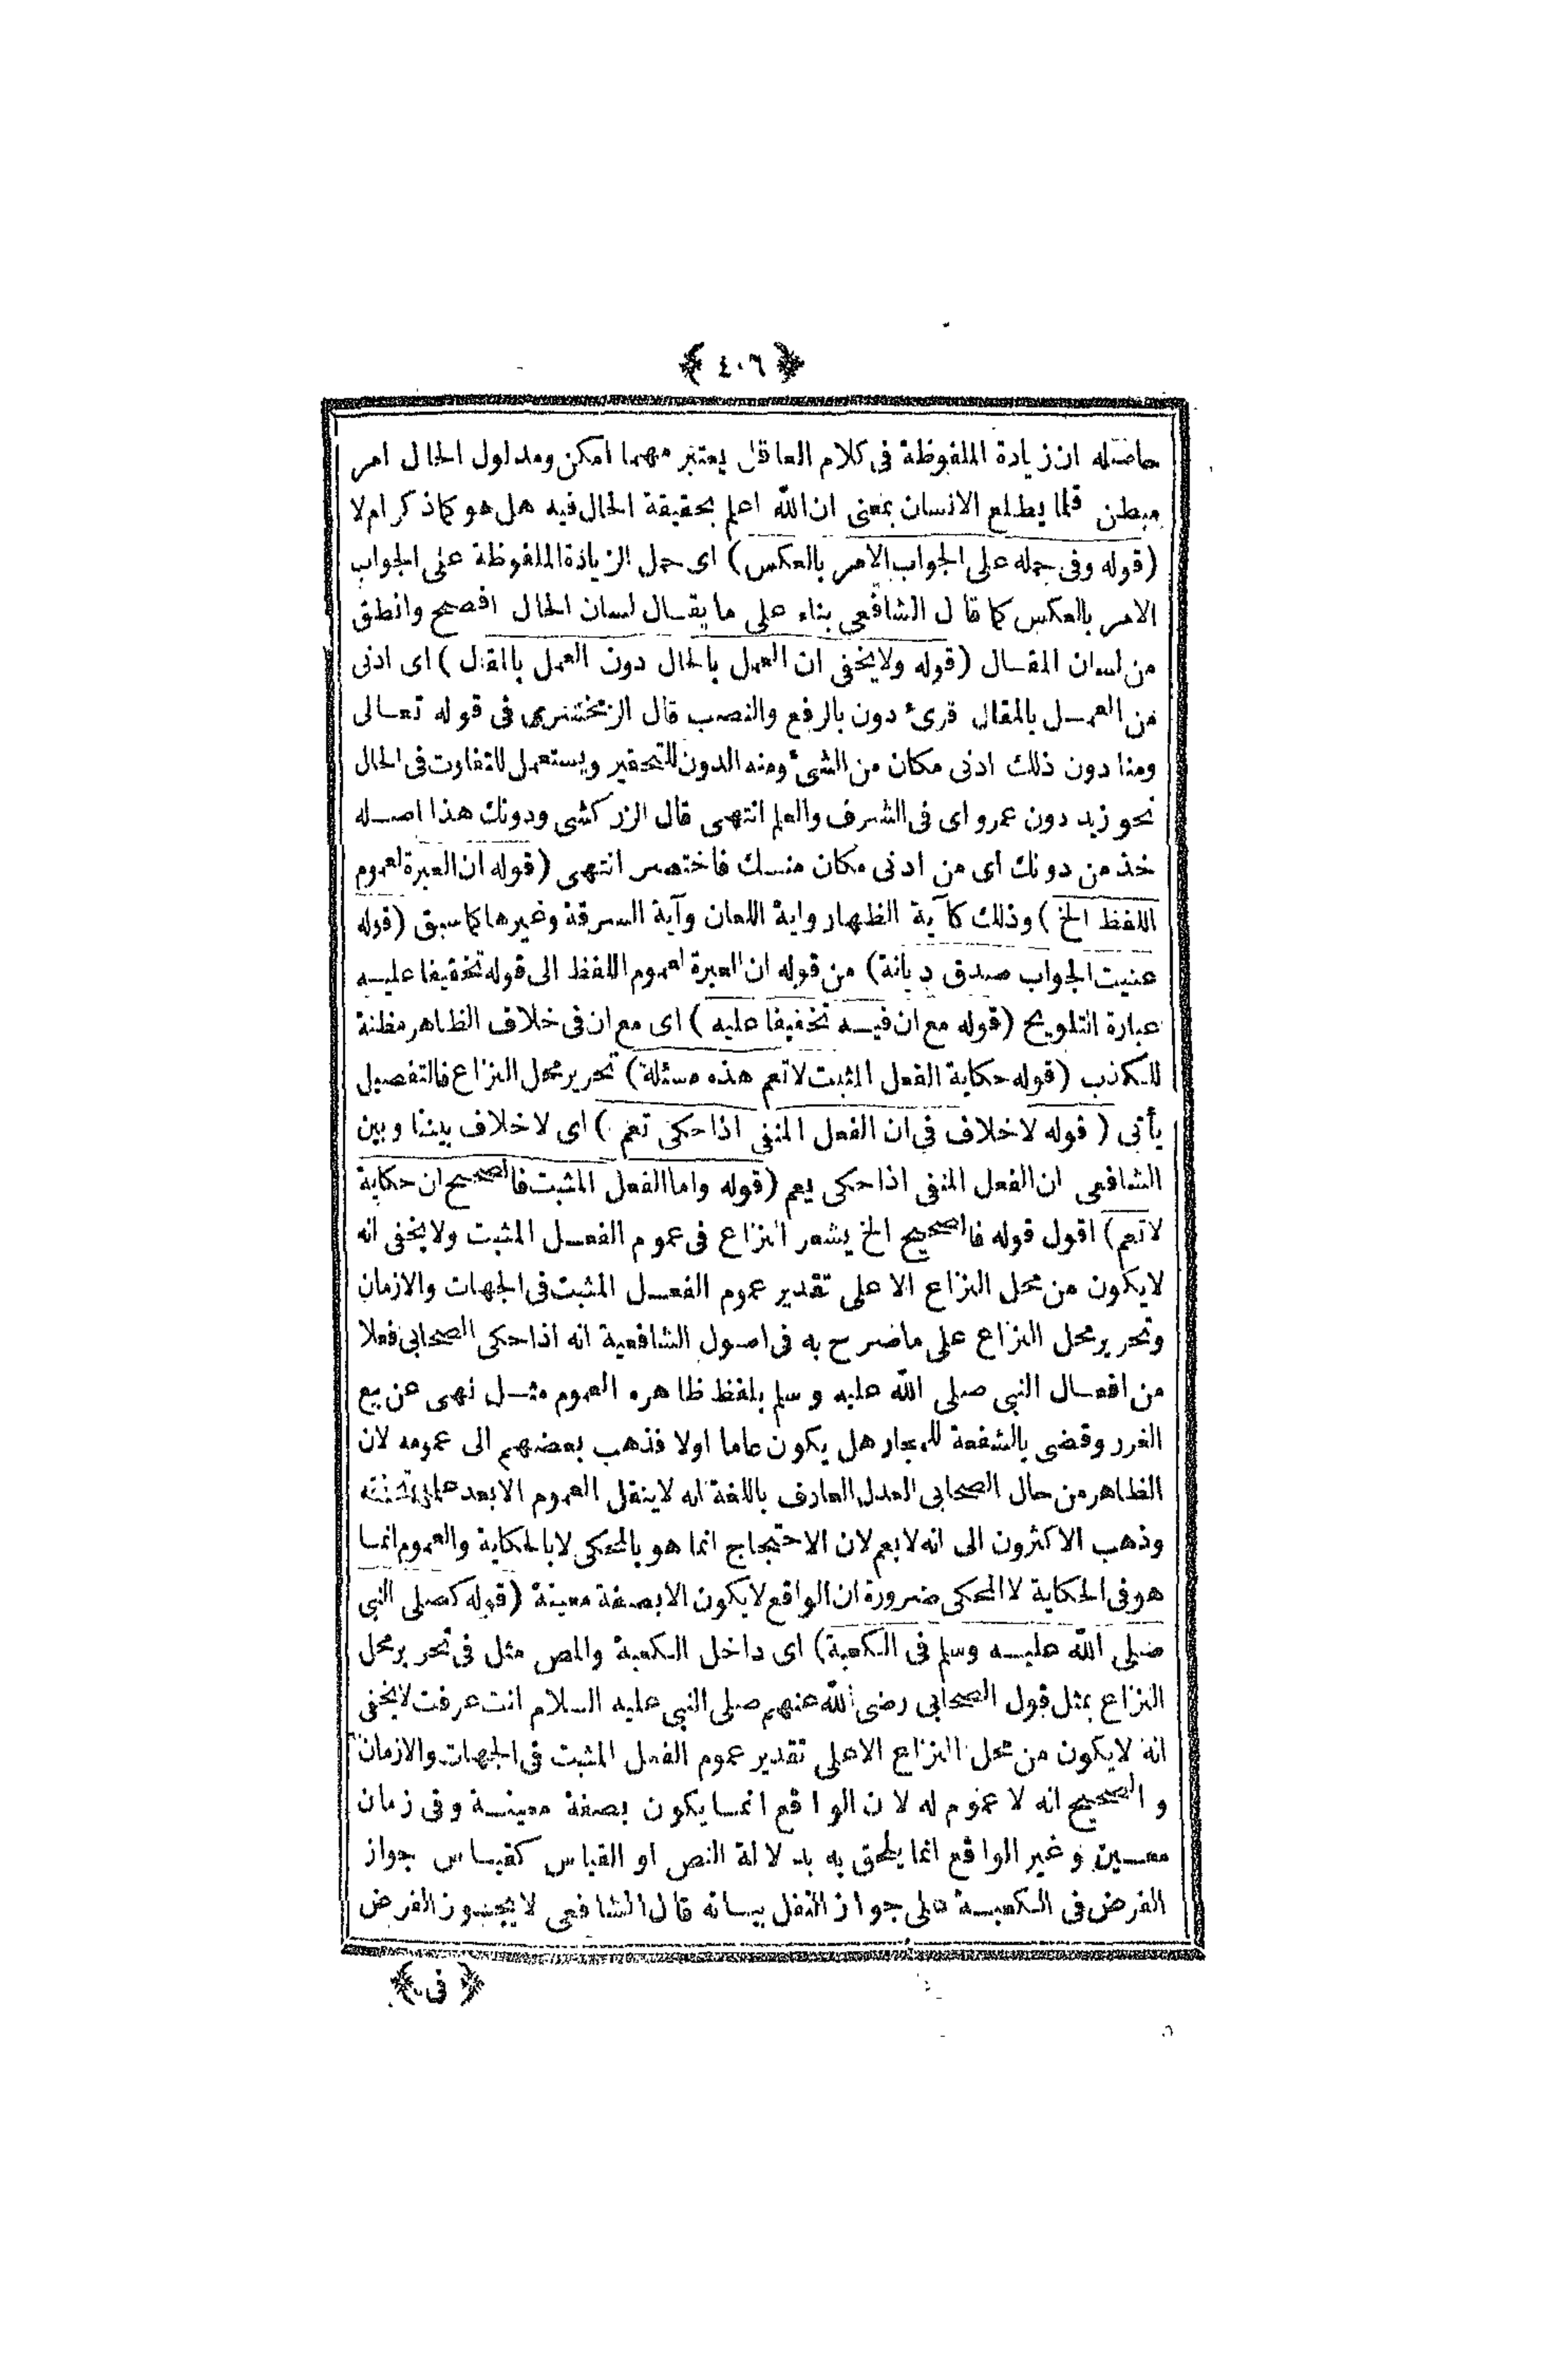 ﴿ ٤٠٦ ﴾
حاصله ان زيادة الملفوظة فى كلام العاقل يعتبر مهما امكن ومدلول الحال امر
مبطن قلما يطلع الانسان بمعنى ان الله اعلم بحقيقة الحال فيه هل هو كما ذكر ام لا
(قوله وفى حمله على الجواب الامر بالعكس) اى حمل الزيادة الملفوظة على الجواب
الامر بالعكس كما قال الشافعى بناء على ما يقال لسان الحال افصح وانطق
من لسان المقال (قوله ولا يخفى ان العمل بالحال دون العمل بالمقال) اى ادنى
من العمل بالمقال قرئ دون بالرفع والنصب قال الزمخشرى فى قوله تعالى
ومنا دون ذلك ادنى مكان من الشئ ومنه الدون للتحقير ويستعمل للتفاوت فى الحال
نحو زيد دون عمرو اى فى الشرف والعلم انتهى قال الزركشى ودونك هذا اصله
خذ من دونك اى من ادنى مكان منك فاختصر انتهى (قوله ان العبرة لعموم
اللفظ الخ) وذلك كآية الظهار واية اللعان وآية السرقة وغيرها كما سبق (قوله
عنيت الجواب صدق ديانة) من قوله ان العبرة لعموم اللفظ الى قوله تخفيفا عليه
عبارة التلويح (قوله مع ان فيه تخفيفا عليه) اى مع ان فى خلاف الظاهر مظنة
للكذب (قوله حكاية الفعل المثبت لا تعم هذه مسئلة) تحرير محل النزاع فالتفصيل
يأتى (قوله لا خلاف فى ان الفعل المنفى اذا حكى تعم) اى لا خلاف بيننا وبين
الشافعى ان الفعل المنفى اذا حكى يعم (قوله واما الفعل المثبت فالصحيح ان حكاية
لا تعم) اقول قوله فالصحيح الخ يشعر النزاع فى عموم الفعل المثبت ولا يخفى انه
لا يكون من محل النزاع الا على تقدير عموم الفعل المثبت فى الجهات والازمان
وتحرير محل النزاع على ما صرح به فى اصول الشافعية انه اذا حكى الصحابى فعلا
من افعال النبى صلى الله عليه وسلم بلفظ ظاهره العموم مثل نهى عن بيع
الغرر وقضى بالشفعة للجار هل يكون عاما اولا فذهب بعضهم الى عمومه لان
الظاهر من حال الصحابى العدل العارف باللغة انه لا ينقل العموم الا بعد علم
وذهب الاكثرون الى انه لا يعم لان الاحتجاج انما هو بالمحكى لا بالحكاية والعموم انما
هو فى الحكاية لا المحكى ضرورة ان الواقع لا يكون الا بصفة معينة (قوله كصلى النبى
صلى الله عليه وسلم فى الكعبة) اى داخل الكعبة والمص مثل فى تحرير محل
النزاع بمثل قول الصحابى رضى الله عنهم صلى النبى عليه السلام انت عرفت لا يخفى
انه لا يكون من محل النزاع الا على تقدير عموم الفعل المثبت فى الجهات والازمان
والصحيح انه لا عموم له لان الواقع انما يكون بصفة معينة وفى زمان
معين وغير الواقع انما يلحق به بدلالة النص او القياس كقياس جواز
الفرض فى الكعبة على جواز النفل بيانه قال الشافعى لا يجوز الفرض
﴿ فى ﴾